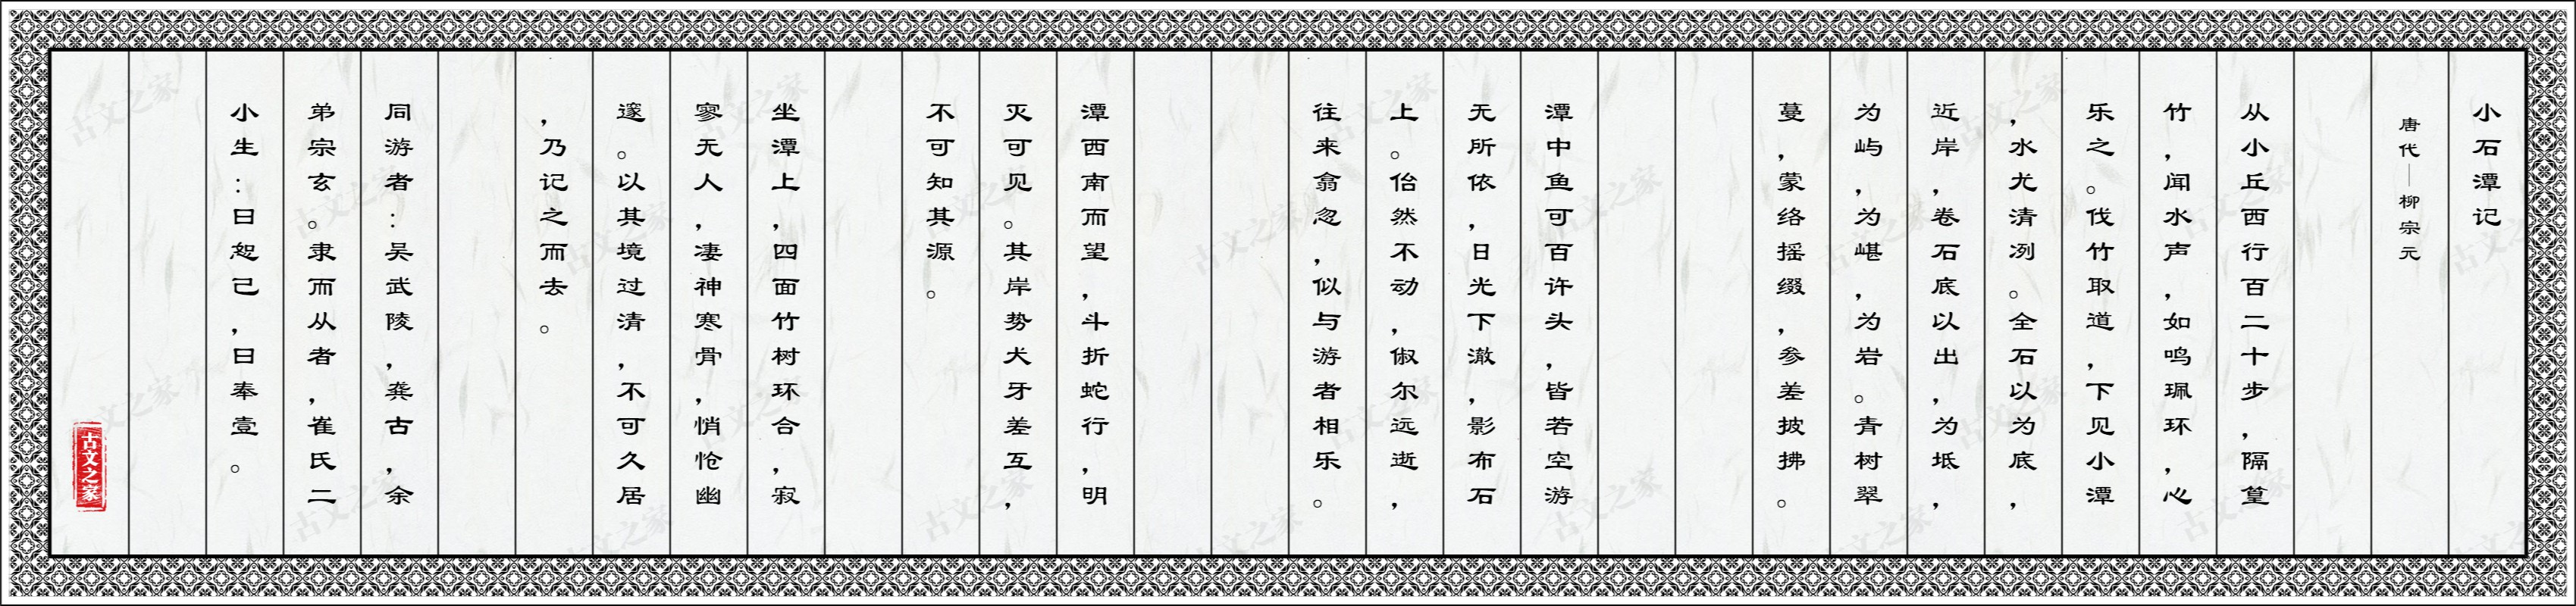 小石潭记
唐代—柳宗元
从小丘西行百二十步，隔篁
竹，闻水声，如鸣珮环，心
乐之。伐竹取道，下见小潭
，水尤清冽。全石以为底，
近岸，卷石底以出，为坻，
为屿，为嵁，为岩。青树翠
蔓，蒙络摇缀，参差披拂。
潭中鱼可百许头，皆若空游
无所依，日光下澈，影布石
上。佁然不动，俶尔远逝，
往来翕忽，似与游者相乐。
潭西南而望，斗折蛇行，明
灭可见。其岸势犬牙差互，
不可知其源。
坐潭上，四面竹树环合，寂
寥无人，凄神寒骨，悄怆幽
邃。以其境过清，不可久居
，乃记之而去。
同游者：吴武陵，龚古，余
弟宗玄。隶而从者，崔氏二
小生：曰恕己，曰奉壹。
古文之家